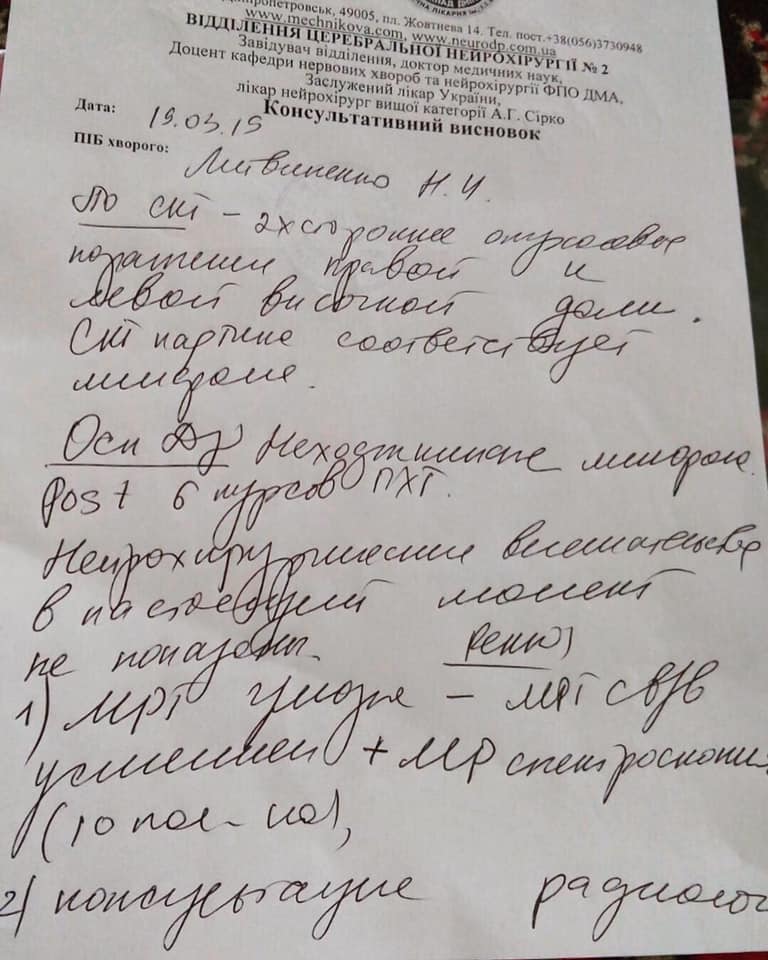 ніпропетровськ, 49005, пл. Жовтнева 14. Тел. пост.+38(056)3730948
www.mechnikova.com, www.neurodp.com.ua
ВІДДІЛЕННЯ ЦЕРЕБРАЛЬНОЇ НЕЙРОХІРУРГІЇ № 2
Завідувач відділення, доктор медичних наук,
Доцент кафедри нервових хвороб та нейрохірургії ФПО ДМА,
Заслужений лікар України,
лікар нейрохірург вищої категорії А.Г. Сірко
Консультативний висновок
Дата: 19.03.15
ПІБ хворого: Литвиненко Н.И.
По СКТ – 2х стороннее опухолевое
поражение правой и
левой височной доли.
СКТ картина соответствует
лимфоме.
Осн Дз Неходжкинская лимфома.
Post 6 курсов ПХТ.
Нейрохирургические вмешательства
в настоящий момент
не показаны. Рекно)
1) МРТ – МРТ с в/в
усилением + МР спектроскопия
2) консультация радиолог